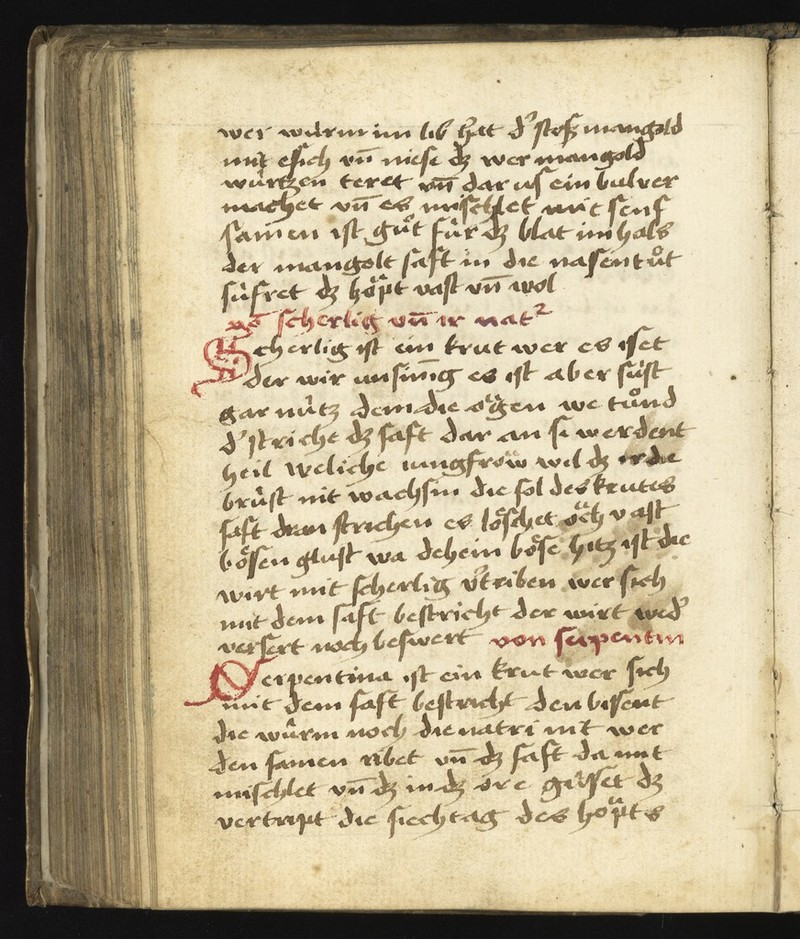 wer würm im lib hat d' stoss mangold
mit essich vn̄ niese dz wer mangold
würtzen teret vn̄ dar us ein bulver
machet vn̄ es mischlet mit senf
samen ist gůt für dz blat im hals
der mangolt saft in die nasen tůt
süfret dz hŏpt vast vn̄ wol
scherlig vn̄ ir nat²
Scherlig ist ein krut wer es isset
der wir unsinīg es ist aber süst
gar nütz dem die ŏgen we tůnd
d' striche dz saft dar an si werdent
heil weliche iungfrow wil dz ir die
brüst nit wachsin die sol des krutes
saft dran strichen es löschet ŏch vast
bösen glust wa dehein böse hitz ist die
wirt mit scherlig v'triben wer sich
mit dem saft bestricht der wirt wed'
versert noch beswert von serpentin
Serpentina ist ein krut wer sich
mit dem saft bestricht den bissent
die würm noch die natri nit wer
den samen ribet vn̄ dz saft da mit
mischlet vn̄ dz in dz ore güsset dz
vertript die siechtag des hŏpts